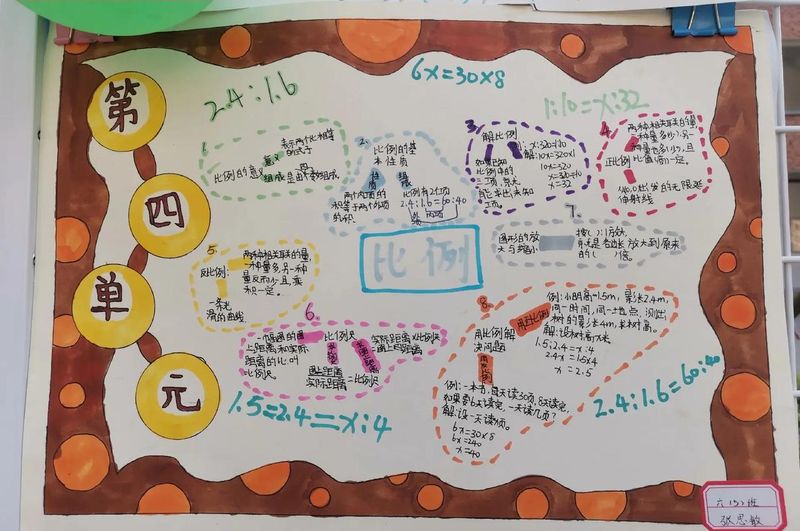 第
四
单
元
2.4:1.6
6x=30×8
1:10=x:32
1.
比例的意义
意义
表示两个比相等
的式子
组成
2.
比例的基
本性质
性质
组成
两个内项的
积等于两个外项
的积
比例有2个项
2.4:1.6=60:40
内项
外项
3.
解比例
如果已知
比例中的
三项,就
能求出未知
项。
解
10x=320×1
10x=320
x=32
4.
正比例
两种相关联的量,
一种量多少,另一
比值一定。
从(0,0)出发的无限延
伸射线
比例
5.
反比例:
两种相关联的量,
一种量多,另一种
量反而少,且乘
积一定。
一条光
滑的曲线
6.
一幅图的图
上距离和实际
距离的比,叫
比例尺
比例尺
图上距离
实际距离
=比例尺
实际距离×比例尺
=图上距离
7.
图形的放
大与缩小
按( ):( )放大,
就是各边长放大到原来
的( )倍。
8.
用比例解
决问题
用正比例
用反比例
例:小明高1.5m,影长2.4m,
同一时间,同一地点,测出
树的影长4m,求树高。
解:设树高x米
1.5:2.4=x:4
2.4x=1.5×4
x=2.5
例:一本书,每天读30页,8天读完,
如果要6天读完,一天读几页?
解:设一天读x页。
6x=30×8
6x=240
x=40
1.5=2.4=x:4
2.4:1.6=60:40
六(5)班
张思敏